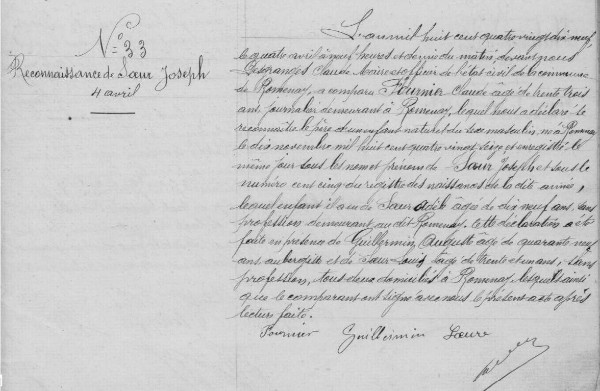 N° 33
Reconnaissance de Saur Joseph
4 avril
L'an mil huit cent quatre vingt dix neuf,
le quatre avril à neuf heures et demie du matin, devant nous
Desgranges Claude Maire et officier de l'état civil de la commune
de Romenay, a comparu Fournier Claude âgé de trente trois
ans journalier demeurant à Romenay, lequel nous a déclaré se
reconnaitre le père d'un enfant naturel du sexe masculin né à Romenay
le dix novembre mil huit cent quatre vingt seize et enregistré le
même jour sous les nom et prénom de Saur Joseph et sous le
numéro cent cinq du registre des naissances de la dite année,
lequel enfant il a eu de Saur Adèle âgée de dix neuf ans sans
profession demeurant au dit Romenay. Cette déclaration a été
faite en présence de Guillermin Auguste âgé de quarante neuf
ans aubergiste et de Saur Louis âgé de trente et un ans, sans
profession, tous deux domiciliés à Romenay, lesquels ainsi
que le comparant ont signé avec nous le présent acte après
lecture faite.
Fournier Guillermin Saure